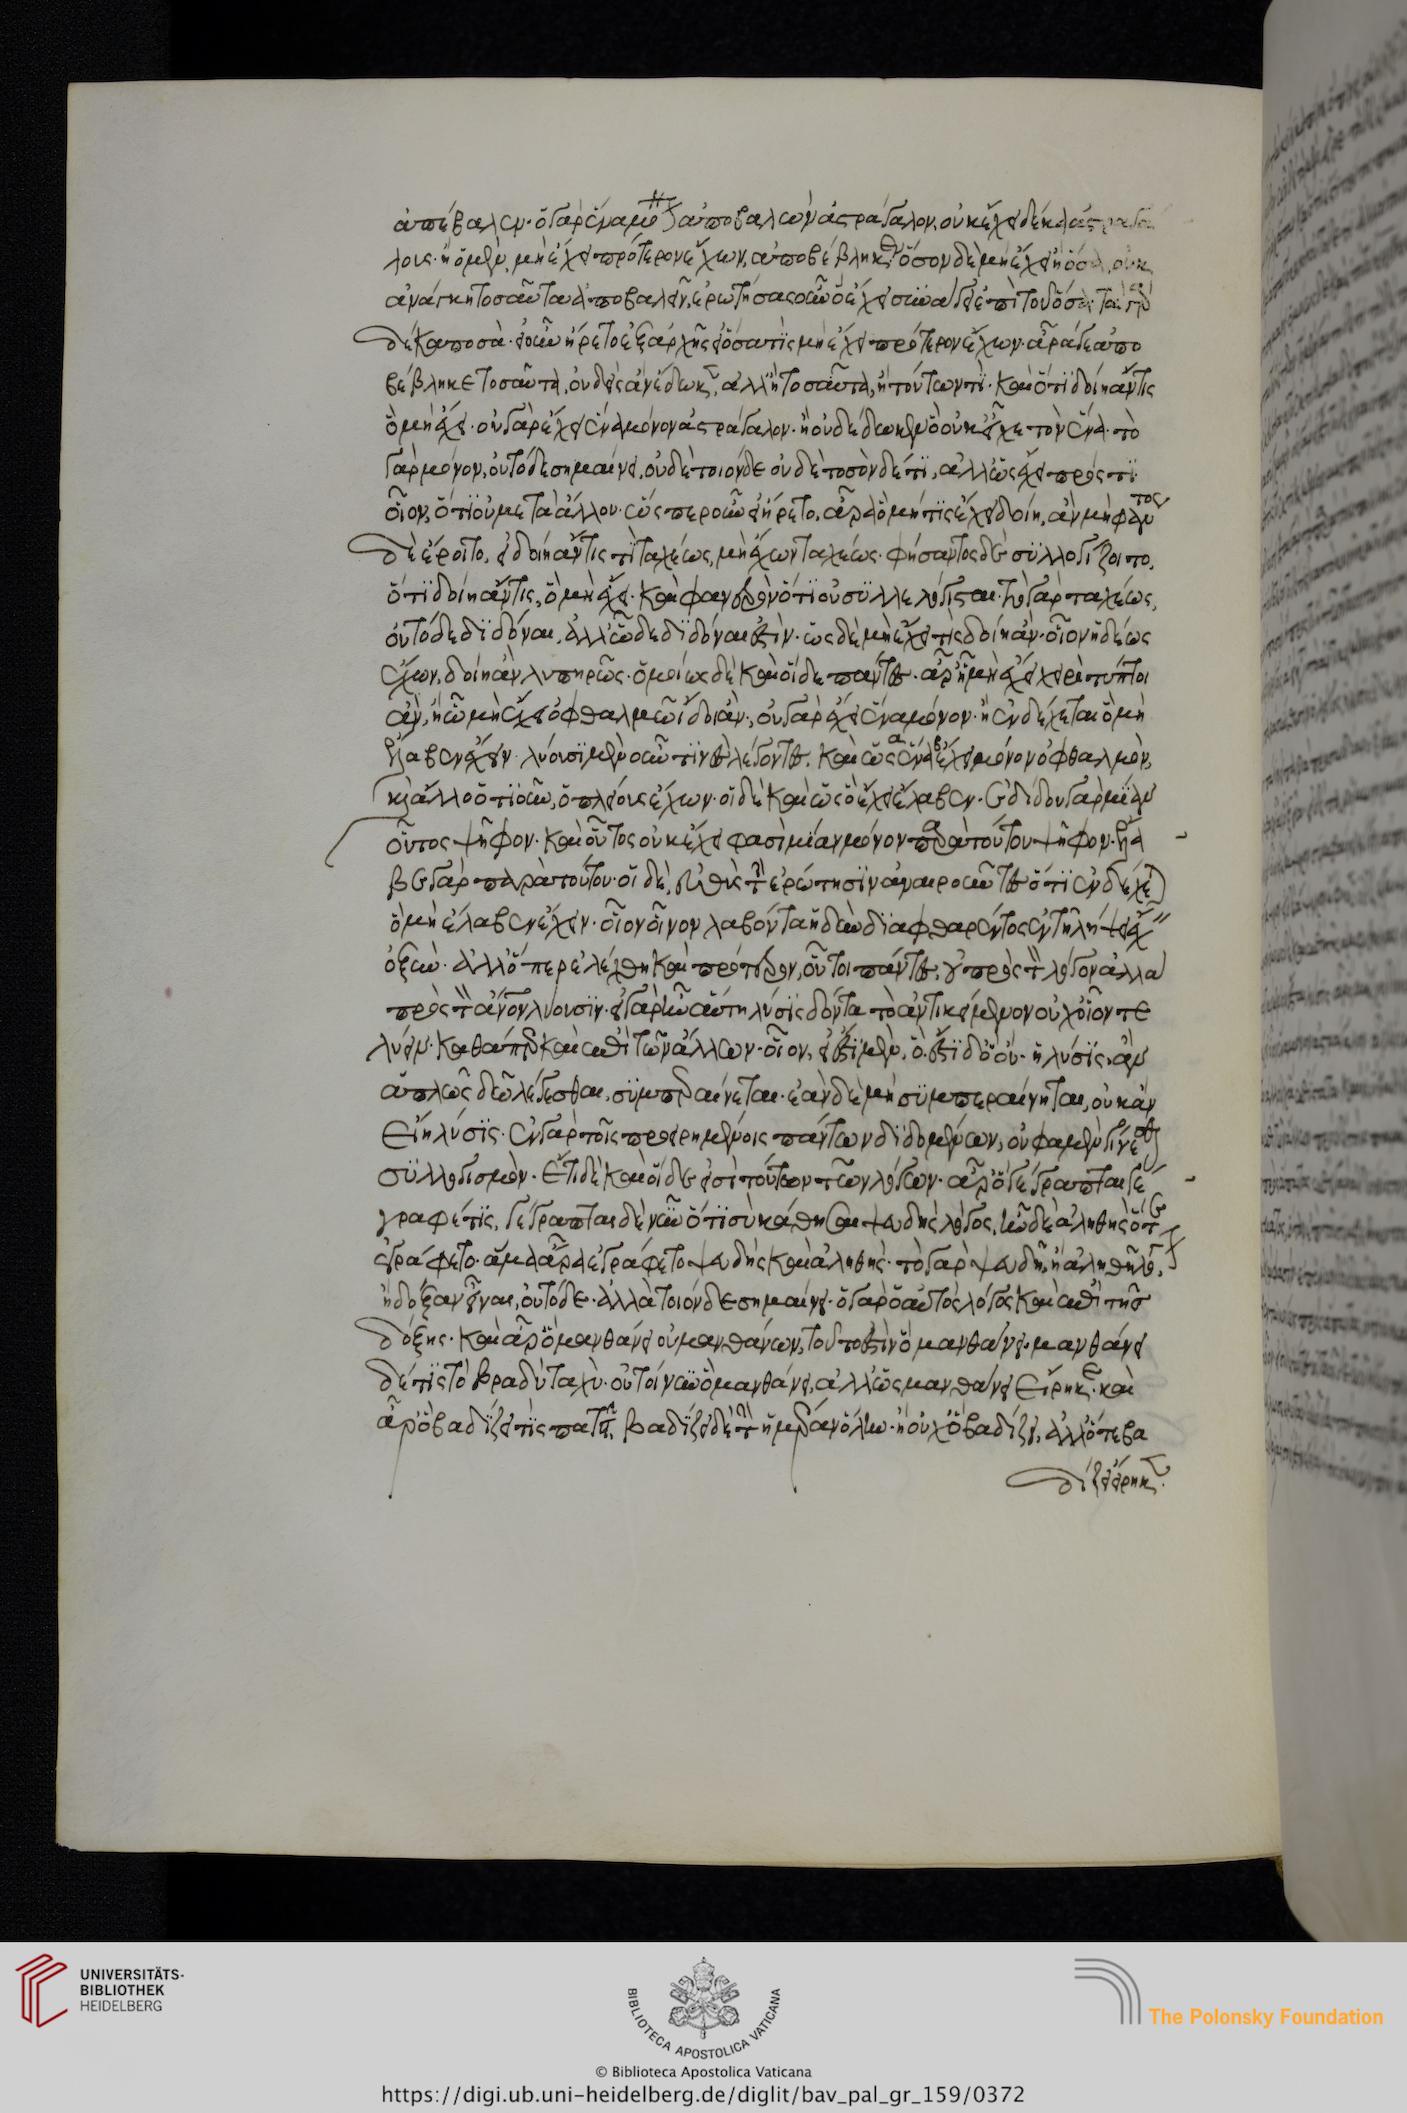 ἀπέβαλεν· ὁ γὰρ ἕνα μόνον ἀποβαλὼν ἀστράγαλον, οὐκ ἔχει δέκα ἀστραγά
λους· ἢ ὃ μὲν μὴ ἔχει πρότερον ἔχων, ἀποβέβληκεν. ὅσον δὲ μὴ ἔχει ἢ ὅσα, οὐκ
ἀνάγκη τοσαῦτα ἀποβαλεῖν, ἐρωτήσας οὖν ὃ ἔχει συνάγει ἐπὶ τοῦ ὅσα· τὰ γὰρ
δέκα ποσά· εἰ οὖν ἤρετο ἐξ ἀρχῆς εἰ ὅσα τὶς μὴ ἔχει πρότερον ἔχων· ἆρά γε ἀπο
βέβληκε τοσαῦτα, οὐδεὶς ἂν ἔδωκεν, ἀλλ' ἢ τοσαῦτα, ἢ τούτων τι· καὶ ὅτι δοίη ἄν τις
ὃ μὴ ἔχει· οὐ γὰρ ἔχει ἕνα μόνον ἀστράγαλον· ἢ οὐ δέδωκεν ὃ οὐκ εἶχε τὸν ἕνα· τὸ
γὰρ μόνον, οὐ τόδε σημαίνει, οὐδὲ τοιόνδε οὐδὲ τοσόνδέ τι, ἀλλ' ὡς ἔχει πρός τι
οἷον, ὅτι οὐ μετὰ ἄλλου· ὥσπερ οὖν εἰ ἤρετο, ἆρα ὃ μή τις ἔχει δοίη, ἂν μὴ φάντος
δὲ ἔροιτο, εἰ δοίη ἄν τις τι ταχέως, μὴ ἔχων ταχέως· φήσαντος δὲ συλλογίζοιτο,
ὅτι δοίη ἄν τις, ὃ μὴ ἔχει· καὶ φανερὸν ὅτι οὐ συλλελόγισται· τὸ γὰρ ταχέως,
οὐ τόδε διδόναι, ἀλλ' ὧδε διδόναι ἐστὶν· ὡς δὲ μὴ ἔχει τὶς δοίη ἂν· οἷον ἡδέως
ἔχων, δοίη ἂν λυπηρῶς· ὁμοίως δὲ καὶ οἵδε πάντες· ἆρ' ᾗ μὴ ἔχει χειρὶ τύπτοι
ἂν, ἢ ᾧ μὴ ἔχει ὀφθαλμῷ ἴδοι ἂν, οὐ γὰρ ἔχει ἕνα μόνον· ἢ ἐνδέχεται ὃ μὴ
ἔλαβεν ἔχειν· λύουσι μὲν οὖν τινὲς λέγοντες, καὶ ὡς ἔχει ἕνα μόνον ὀφθαλμὸν,
καὶ ἄλλο ὁτιοῦν, ὁ πλείους ἔχων· οἱ δὲ καὶ ὡς ὃ ἔχει ἔλαβεν· ἐδίδου γὰρ μίαν
οὗτος ψῆφον· καὶ οὗτος οὐκ ἔχει φασὶ μίαν μόνον παρὰ τούτου ψῆφον· ἔλα
βε γὰρ παρὰ τούτου· οἱ δὲ, εὐθὺς τὴν ἐρώτησιν ἀναιροῦντες ὅτι ἐνδέχεται
ὃ μὴ ἔλαβεν ἔχειν· οἷον οἶνον λαβόντα ἡδὺν διαφθαρέντος ἐν τῇ λήψει ἔχειν
ὀξύν· ἀλλ' ὅπερ ἐλέχθη καὶ πρότερον, οὗτοι πάντες, οὐ πρὸς τὸν λόγον ἀλλὰ
πρὸς τὸν ἄνθρωπον λύουσιν· εἰ γὰρ ἦν αὕτη λύσις δόντα τὸ ἀντικείμενον οὐχ οἷόν τε
λύειν· καθάπερ καὶ ἐπὶ τῶν ἄλλων· οἷον, εἰ ἔστι μὲν, ὃ ἔστι δ' ὃ οὔ· ἡ λύσις, ἂν
ἁπλῶς δῷ λέγεσθαι, συμπεραίνεται· ἐὰν δὲ μὴ συμπεραίνηται, οὐκ ἂν
εἴη λύσις· ἐν γὰρ τοῖς προειρημένοις πάντων διδομένων, οὐ φαμὲν γίνεσθαι
συλλογισμὸν· Ἔτι δὲ καὶ οἵδε εἰσὶ τούτων τῶν λόγων· ἆρ' ὃ γέγραπται γέ
γραφέ τις, γέγραπται δὲ νῦν ὅτι σὺ κάθησαι ψευδὴς λόγος, ἦν δὲ ἀληθὴς ὅτ'
ἐγράφετο· ἅμα ἆρα ἐγράφετο ψευδὴς καὶ ἀληθής· τὸ γὰρ ψευδῆ, ἢ ἀληθῆ λόγον,
ἢ δόξαν εἶναι, οὐ τόδε· ἀλλὰ τοιόνδε σημαίνει· ὁ γὰρ αὐτὸς λόγος καὶ ἐπὶ τῆς
δόξης· καὶ ἆρ' ὃ μανθάνει ὁ μανθάνων, τοῦτό ἐστιν ὃ μανθάνει· μανθάνει
δέ τις τὸ βραδὺ ταχὺ· οὐ τοίνυν ὃ μανθάνει, ἀλλ' ὡς μανθάνει εἴρηκε· καὶ
ἆρ' ὃ βαδίζει τὶς πατεῖ, βαδίζει δὲ τὴν ἡμέραν ὅλην· ἢ οὐχ ὃ βαδίζει, ἀλλ' ὅτε βα
δίζει εἴρηκεν.
UNIVERSITÄTS-
BIBLIOTHEK
HEIDELBERG
BIBLIOTECA APOSTOLICA VATICANA
The Polonsky Foundation
© Biblioteca Apostolica Vaticana
https://digi.ub.uni-heidelberg.de/diglit/bav_pal_gr_159/0372